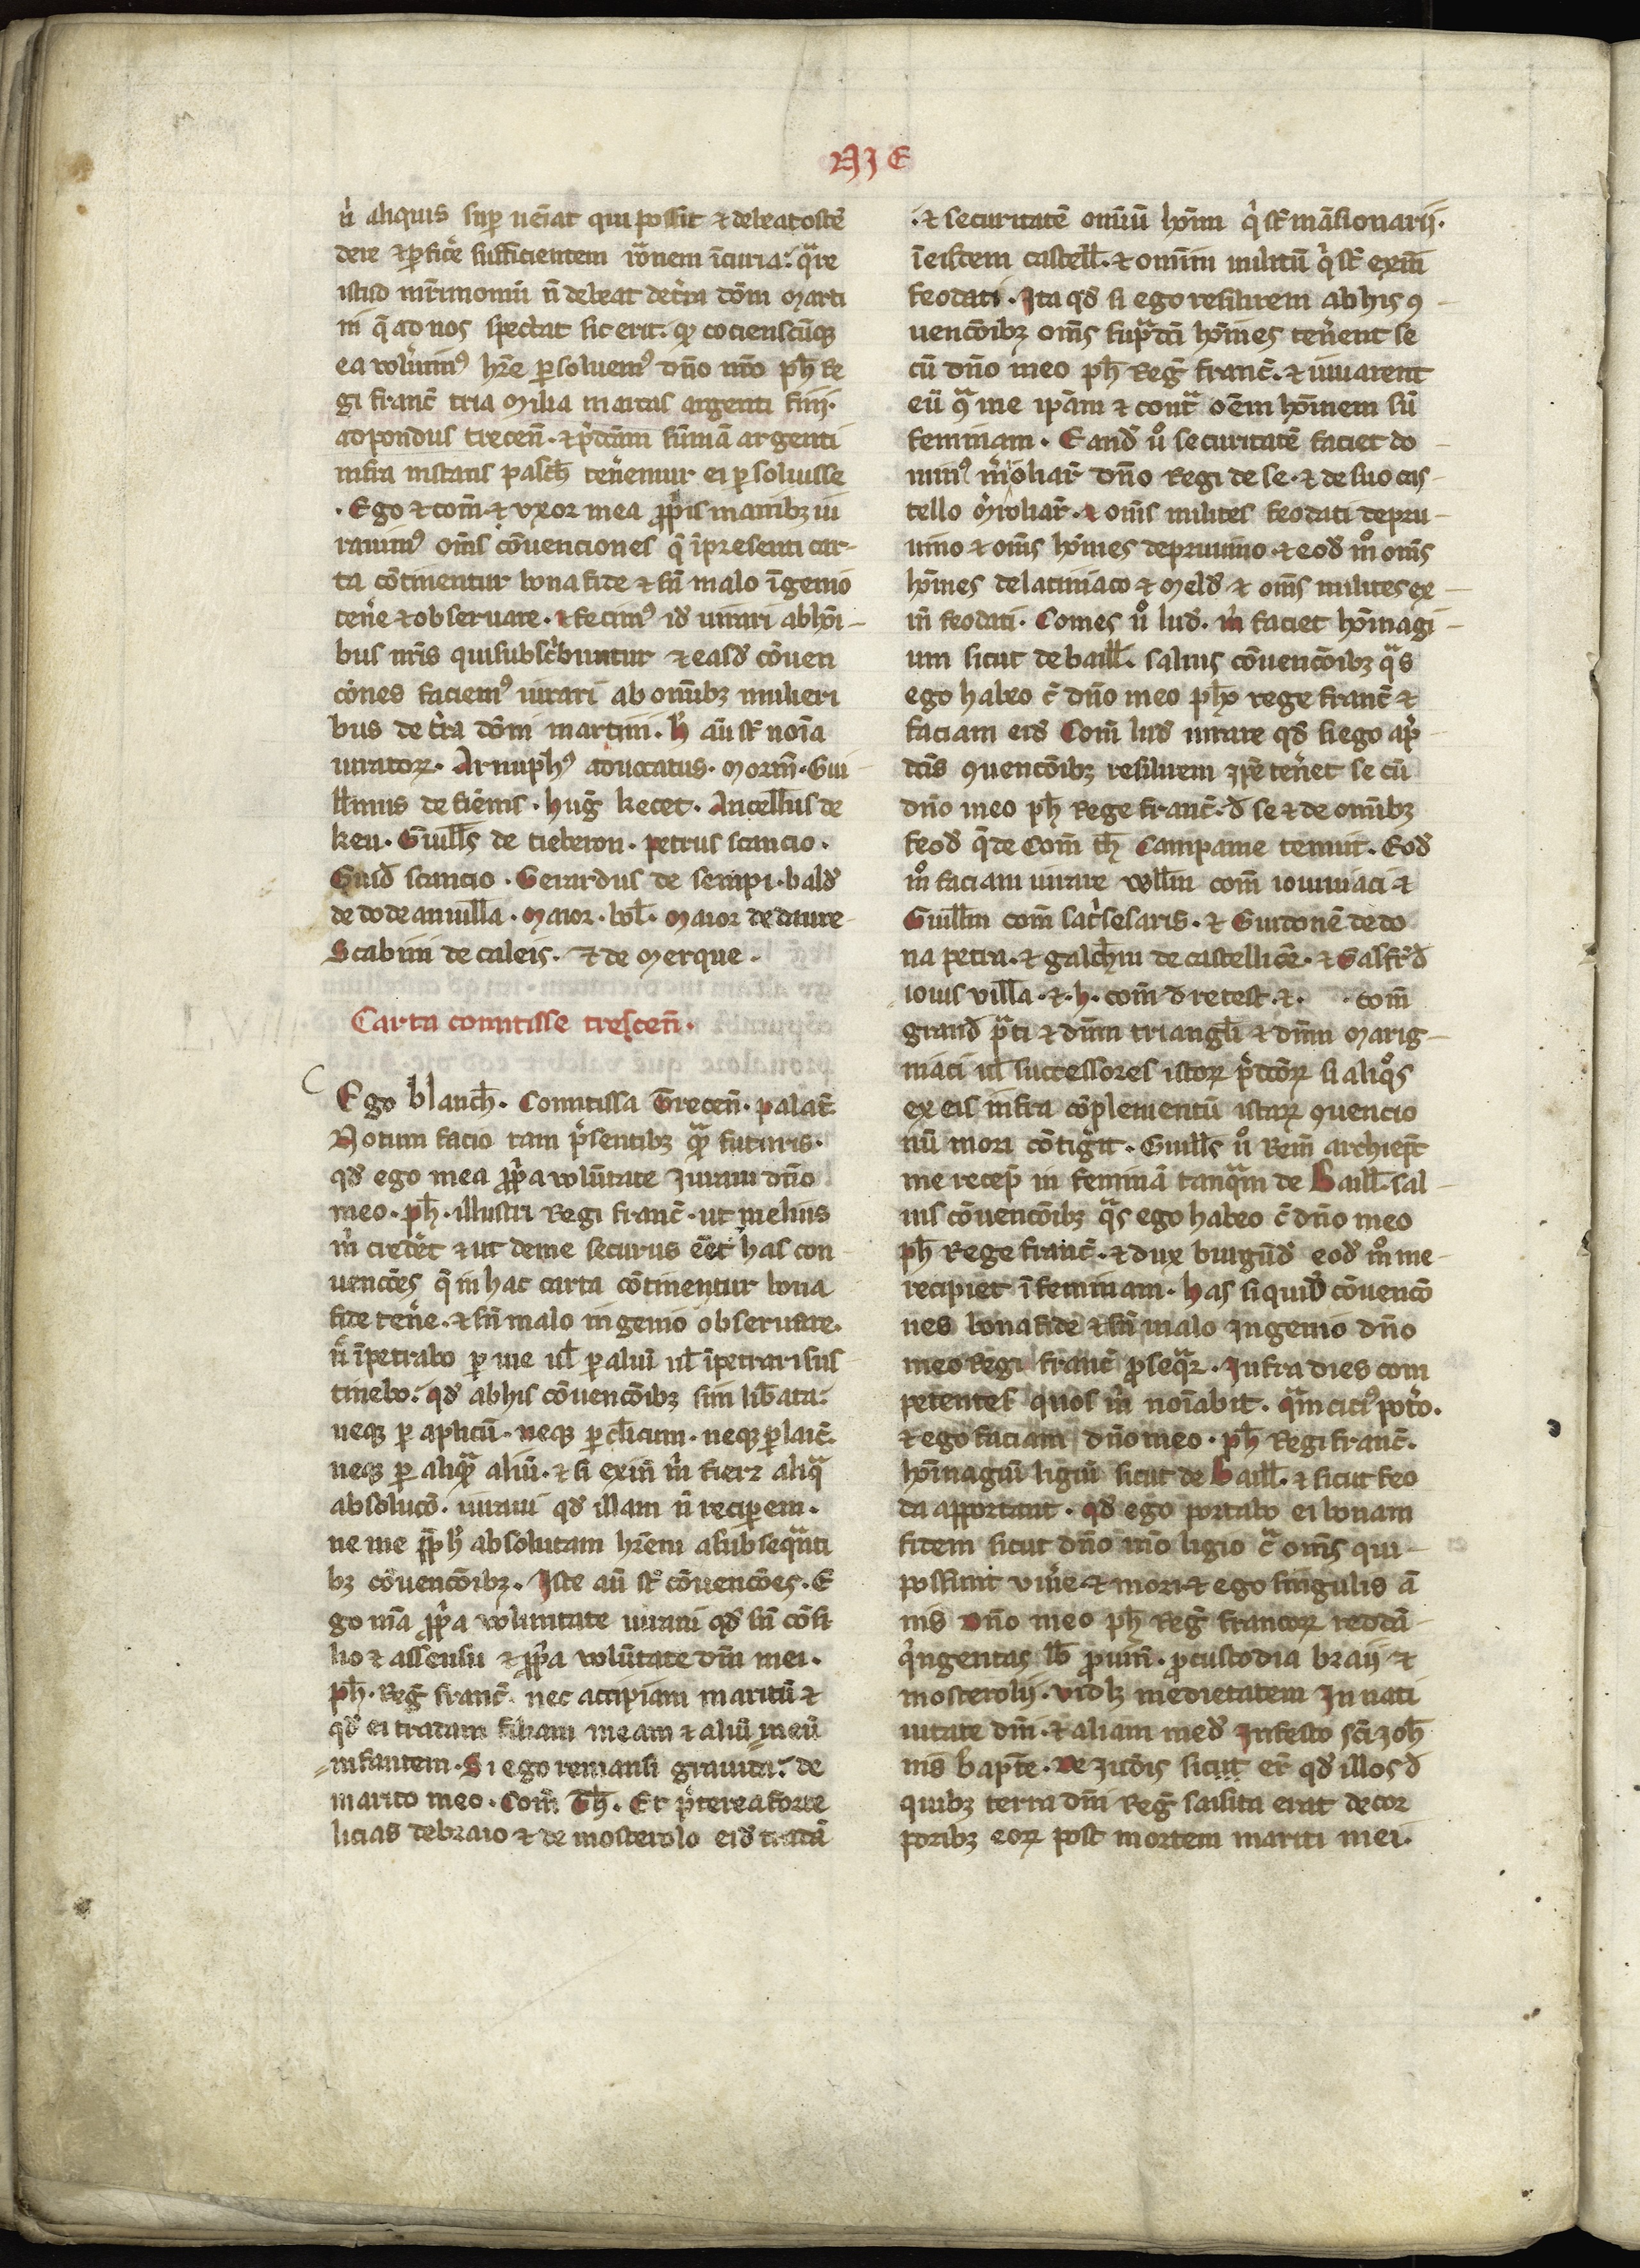 NJE
ń aliquis sup̱ ueniat qui possit & debeat osten̄
dere & p̱ficẻ sufficientem rōnem ī curia. q̄re
istud mr̄imoniū n̄ debeat de tr̄a dōni marti
ni q̄ ad nos spectat sic erit. qđ cociensctūqꝫ
ea uoluim⁹ hr̄e p̱soluem⁹ dn̄o nr̄o ph̄ re
gi franc̄ tria milia marcas argenti finij.
ad pondus trecen̄. & p̄dcām sūmā argenti
infra instans pasch̄ tenemur ei p̱soluisse
. Ego & com̄ & vxor mea pp̄iis manibꝫ iu
rauim⁹ om̄s cōuenciones q̄ ī presenti car-
ta cōtinentur bona fide & sn̄ malo īgenio
tenẻ & obseruare. & fecim⁹ id̄ iurari ab hōi-
bus nr̄is qui subsc͛buntur & easd̄ cōuen
cōnes faciem⁹ iurari ab omībꝫ mulieri
bus de tr̄a dōni martini. h̄ aū st̄ noīa
iuratoꝝ. Arnuph⁹ aduocatus. Morin̄. Gui
llīmus de fiēnis. huḡ kecet. Ancellus de
keu. Guill̄s de tieberon. petrus scancio.
Guid̄ scancio. Gerardus de sempi. bald̄
de dodeanuill̄a. Maior. bol̄. Maior de daure
Scabini de caleis. & de Merque.
Carta comitisse trescen̄.
Ego blanch̄. Comitissa Trecen̄. palat̄.
Notum facio tam p̄sentibꝫ q̄ꝫ futuris.
qđ ego mea pp̄a volūtate Iuraui dn̄o
meo. ph̄. illustri Regi franc̄. ut melius
m̄ credet̄ & ut de me securus eēt has con
uencōes q̄ in hac carta cōtinentur bona
fide tenẻ. & sn̄ malo ingenio obseruare.
n̄ īpetrabo p̱ me ul̄ p̱ aliū ul̄ īpetrari sus
tinebo. qđ ab his cōuencōibꝫ sim lib̄ata.
neqꝫ p̱ aplicū. neqꝫ p̱ cl̄icum. neqꝫ p̱ laic̄.
neqꝫ p̱ aliq̄ꝫ aliū. & si exin̄ m̄ fier̄ aliq̄
absolucō. iuraui qđ illam n̄ recip̱em.
ne me pp̱ h̄ absolutam hr̄em a subsequn̄ti
bꝫ cōuencōibꝫ. Iste aū st̄ cōuencōes. E
go mā pp̄a voluntate iuraui qđ sn̄ cōsi
lio & assensu & pp̄a volūtate dn̄i mei.
ph̄. Reḡ franc̄. nec accipiam maritū &
qđ ei tradam filiam meam & aliū meū
infantem. Si ego remansi grauida. de
marito meo. Com̄ Th̄. Et p̄terea forte
licias de braio & de mosterolo eid̄ tradā
. & securitatē omīū hoīm q̄ st̄ māsionarij.
ī eistem castell̄. & omīm militū q̄ st̄ exin̄
feodati. Ita qđ si ego resilirem ab his ꝯ
uencōibꝫ om̄s sup̄dc̄i hoīmes tenerent se
cū dn̄o meo ph̄ Reḡ franc̄. & iuuarent
eū ꝯ̄ me ip̄am & cont̄ oēm hoīnem siū
feminam. Eand̄ ủ securitatē faciet do
min⁹ m̄oliar̄ dn̄o Regi de se. & de suo cas
tello M̄oliar̄. & om̄s milites feodati de pru
uino & om̄s hoīmes de pruuino. & eod̄ mͦ om̄s
hoīmes de latiniaco & Meld̄ & om̄s milites ex
in̄ feodati. Comes ủ lud̄. m̄ faciet hoīnagi
um sicut de baill̄. saluis cōuencōibꝫ q̄s
ego habeo c̄ dn̄o meo pho rege franc̄ &
faciam eid̄ Com̄ lud̄ iurare qđ si ego a p̄
dc̄is ꝯuencōibꝫ resilirem ip̄e teneret se cū
dn̄o meo ph̄ Rege franc̄. d̄ se & de omībꝫ
feod̄ q̄ de Com̄ th̄ Campanie tenuit. Eod̄
mͦ faciam iurare Wll̄m com̄ iouiniaci &
Guill̄m com̄ sac̄sesaris. & Guidonē de do
na petra. & galch̄m de castellicē. & Galfr̄d
iouis uill̄a. & h. com̄ d̄ retest. &. . com̄
grand̄ p̄ti & dn̄m triangl̄i & dn̄m Marig
niaci ul̄ successores istoꝝ p̄dc̄oꝝ si aliqͦs
ex eis infra cōplementū istaꝝ ꝯuencio
nū mori cōtigit̄. Guill̄s ủ Rem̄ archiep̄c
me recep̄ in feminā tanq̄m de Baill̄. sal
uis cōuencōibꝫ q̄s ego habeo c̄ dn̄o meo
ph̄ Rege franc̄. & dux burgūd̄ eod̄ mͦ me
recipiet ī feminam. has siquid̄ cōuencō
nes bona fide & sn̄ malo Ingenio dn̄o
meo Regi franc̄ p̱seq̄r. Infra dies com
petentes quos m̄ noīabit. q̄m cic⁹ pot̄o.
& ego faciam dn̄o meo. ph̄ Regi franc̄.
hoīnagiū ligiū sicut de Baill̄. & sicut feo
da apportant. qđ ego portabo ei bonam
fidem sicut dn̄o mō ligio c̄ om̄s qui
possunt viuẻ & mori & ego singulis ā
nis dn̄o meo ph̄ Reḡ francoꝝ reddā
q̄ngentas lb̄ p̱uin̄. p̱ custodia braij &
mosterolij. vid̄lꝫ medietatem In nati
uitate dn̄i. & aliam med̄ In festo sc̄i Ioh̄
nis bapt̄e. De Iud̄is sicut er̄ qđ illos d̄
quibꝫ terra dn̄i Reḡ saisita erat de cor
poribꝫ eoꝝ post mortem mariti mei.